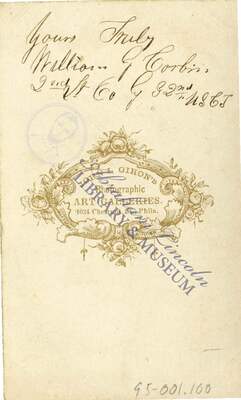 Yours Truly
William G Corbin
2nd Lt Co G 32nd USCT
GIHON'S
Photographic
ART GALLERIES.
1024 Chestnut St. Phila.
Abraham Lincoln
LIBRARY & MUSEUM
95-001.100